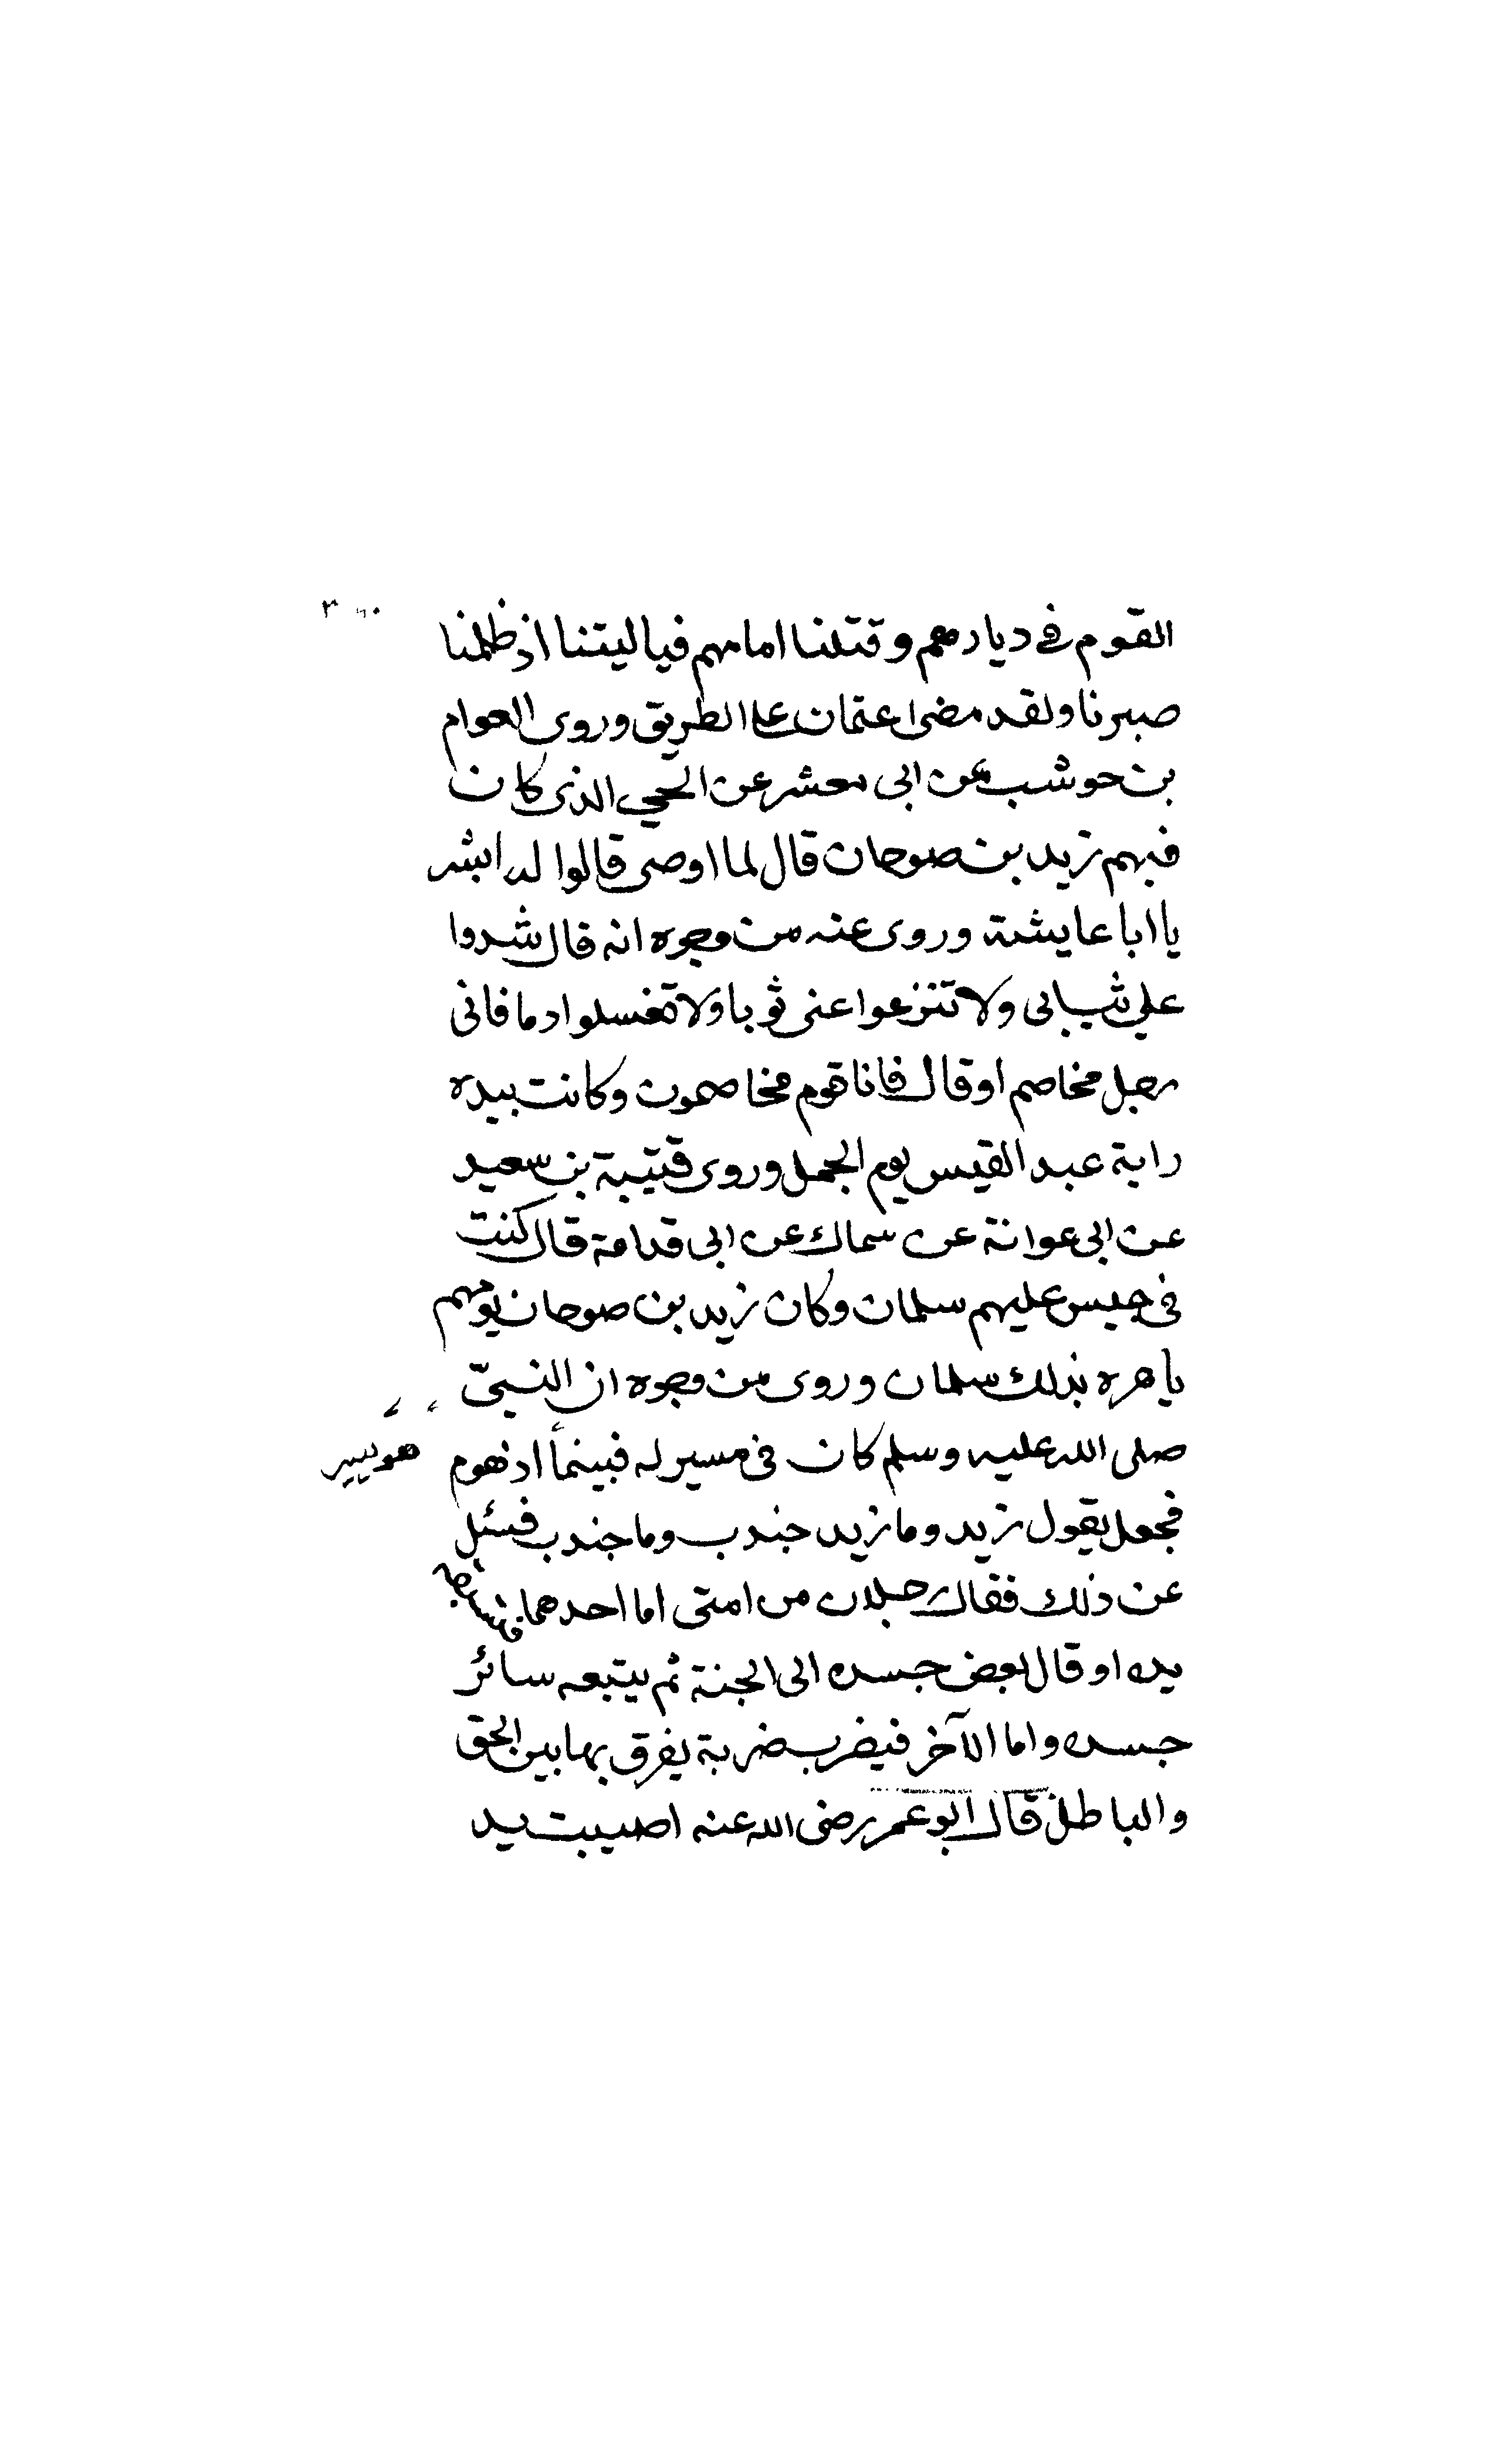 القوم في ديارهم وقتلنا امامهم فياليتنا اذ ظلمنا
صبرنا ولقد مضى عثمان على الطريق وروى العوام
بن حوشب عن ابى معشر عن الحي الذى كان
فيهم زيد بن صوحان قال لما اوصى قالوا له ابشر
يا ابا عايشة وروى عنه من وجوه انه قال شدوا
علي ثيابى ولا تنزعوا عنى ثوبا ولا تغسلوا دما فانى
رجل مخاصم او قال فانا قوم مخاصمون وكانت بيده
راية عبد القيس يوم الجمل وروى قتيبة بن سعيد
عن ابى عوانة عن سماك عن ابى قدامة قال كنت
فى جيس عليهم سلمان وكان زيد بن صوحان يؤمهم
يامره بذلك سلمان وروى من وجوه ان النبىّ
صلى الله عليه وسلم كان فى مسير له فبينما اذ هوم
هو يسير
فجعل يقول زيد وما زيد جندب وما جندب فسئل
عن ذلك فقال رجلان من امتى اما احدهما فتسبقه
يده او قال بعض جسده الى الجنة ثم يتبعه سائر
جسده واما الآخر فيضرب ضربة يفرق بها بين الحق
والباطل قال ابو عمر رضى الله عنه اصيبت يد